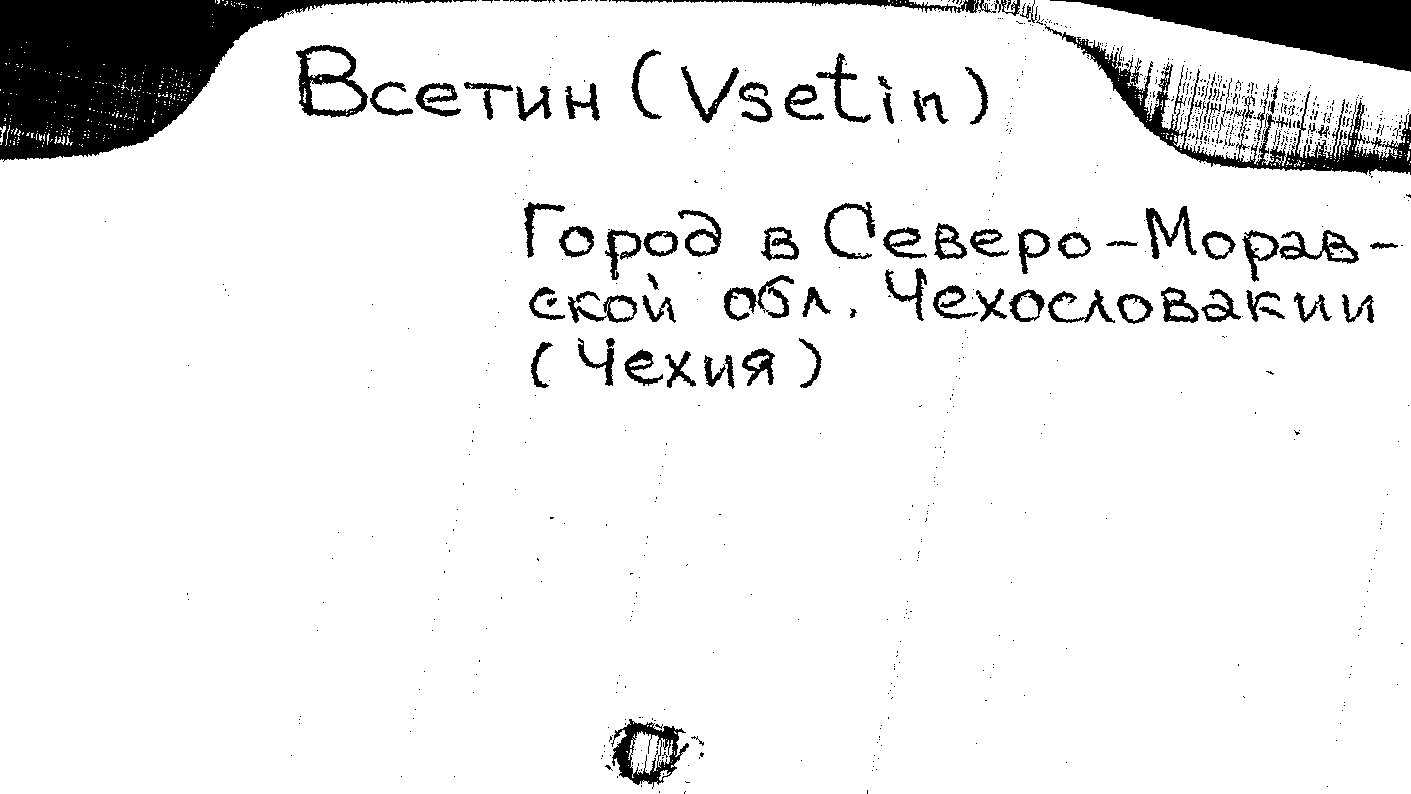 Всетин (Vsetin)
Город в Северо-Морав-
ской обл. Чехословакии
(Чехия)